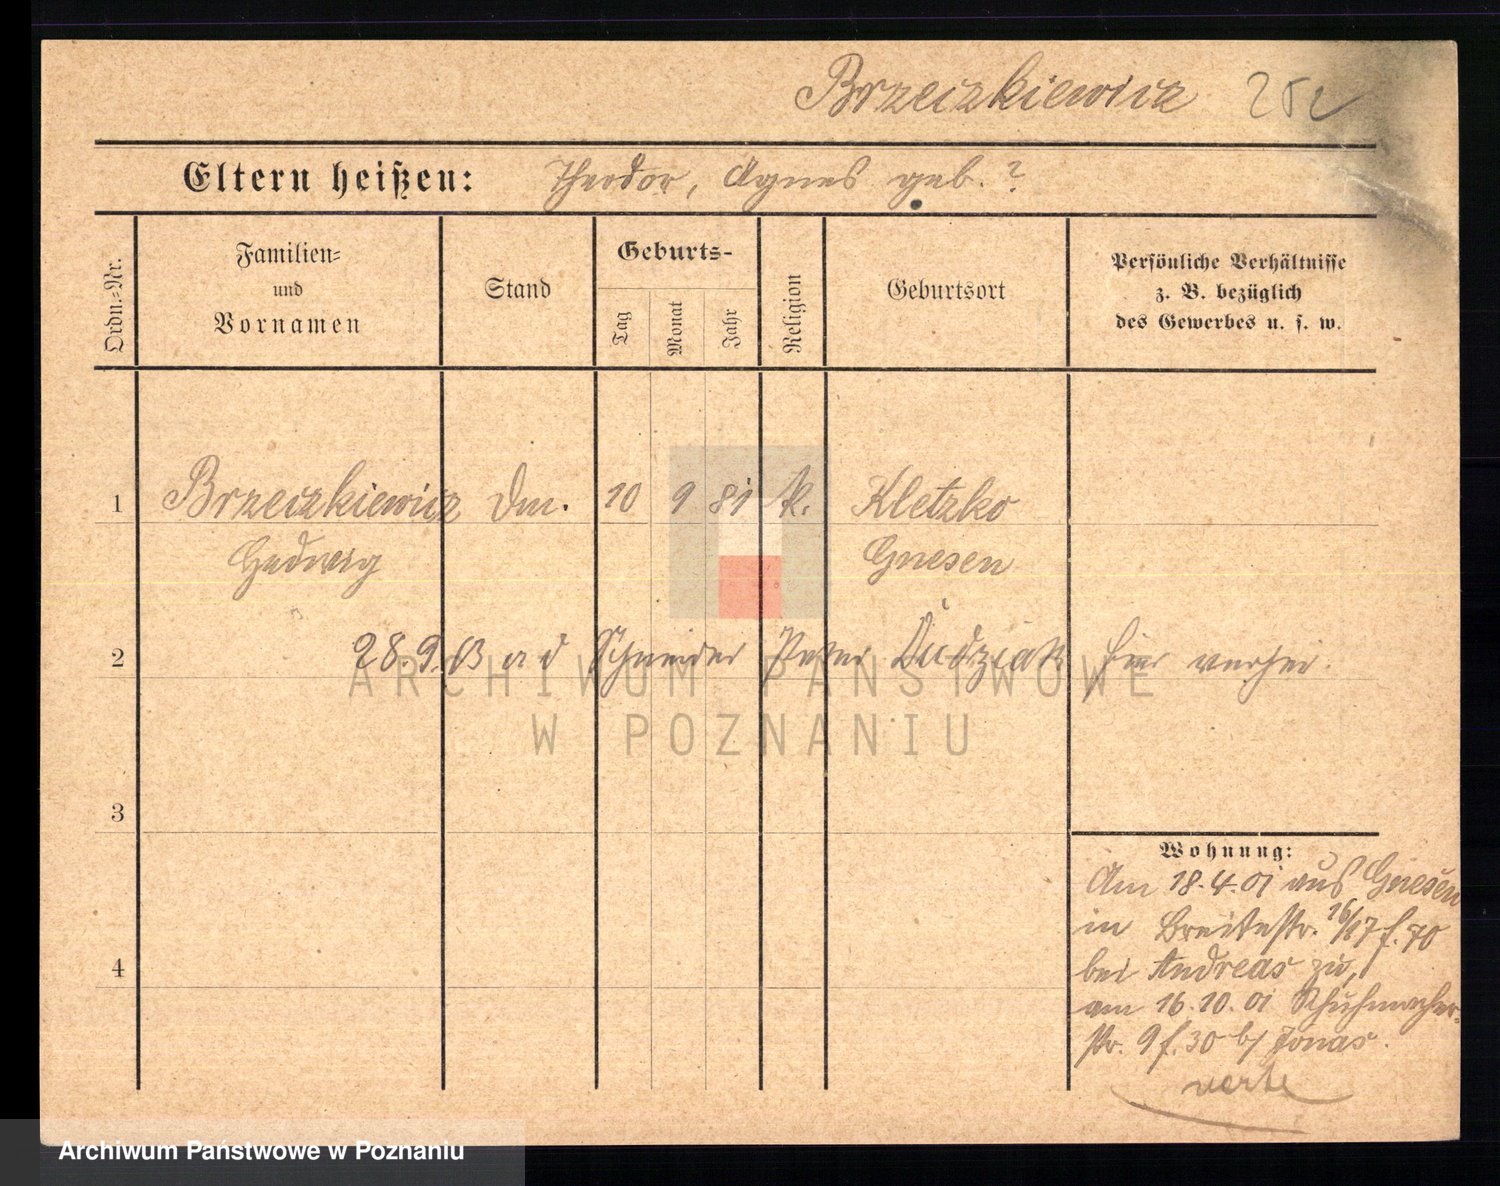 Brzeczkiewicz 252
Eltern heißen: Theodor, Agnes geb. ?
Ordn.=Nr.
Familien=
und
Vornamen
Stand
Geburts-
Tag
Monat
Jahr
Religion
Geburtsort
Persönliche Verhältnisse
z. B. bezüglich
des Gewerbes u. s. w.
1 Brzeczkiewicz Dm. 10 9 81 k. Kletzko
Hedwig Gnesen
2 28.9.03 a d Schneider Peter Dudziak hier verhei.
3
Wohnung:
Am 18.4.01 aus Gnesen
in Breitestr. 16/17 f. 70
bei Andreas zu,
4
am 16.10.01 Schuhmacher-
str. 9 f. 30 b/ Jonas.
verte
ARCHIWUM PAŃSTWOWE
W POZNANIU
Archiwum Państwowe w Poznaniu